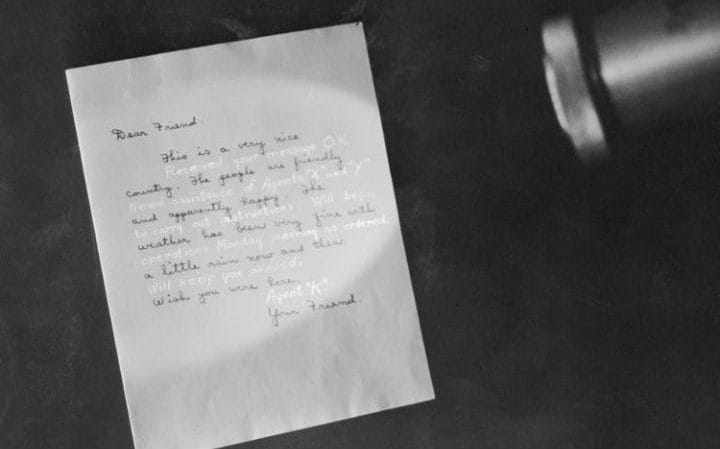 Dear Friend:
This is a very nice
Received your message O.K.
country. The people are friendly
Need assistance of Agents "X" and "Y"
and apparently happy. The
to carry out instructions. Will begin
weather has been very fine with
operations Monday morning as ordered.
a little rain now and then.
Will keep you advised.
Wish you were here.
Agent "K"
Your Friend.